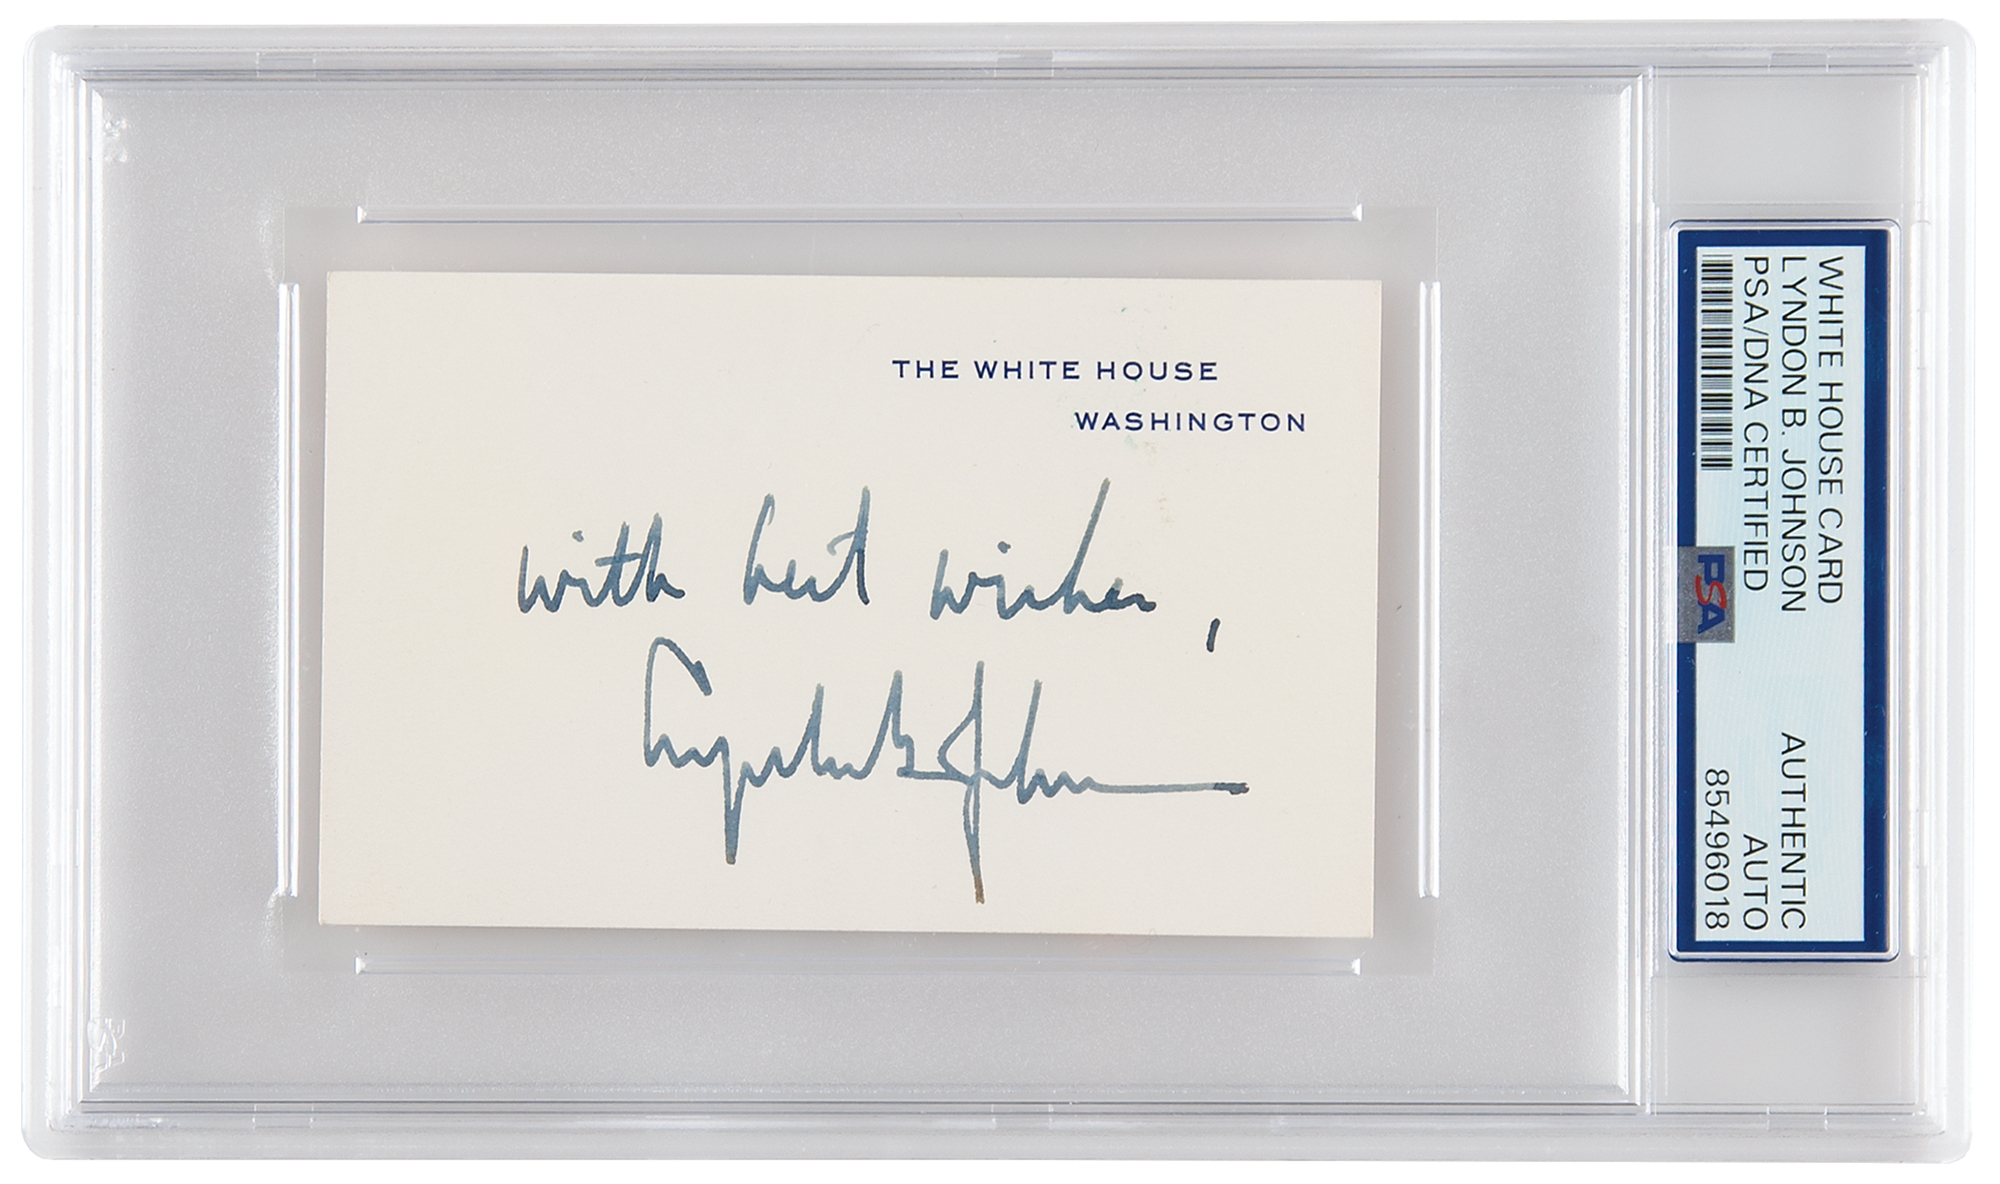 THE WHITE HOUSE
WASHINGTON
with best wishes,
Lyndon B. Johnson
WHITE HOUSE CARD
LYNDON B. JOHNSON
PSA/DNA CERTIFIED
AUTHENTIC
AUTO
85496018
PSA